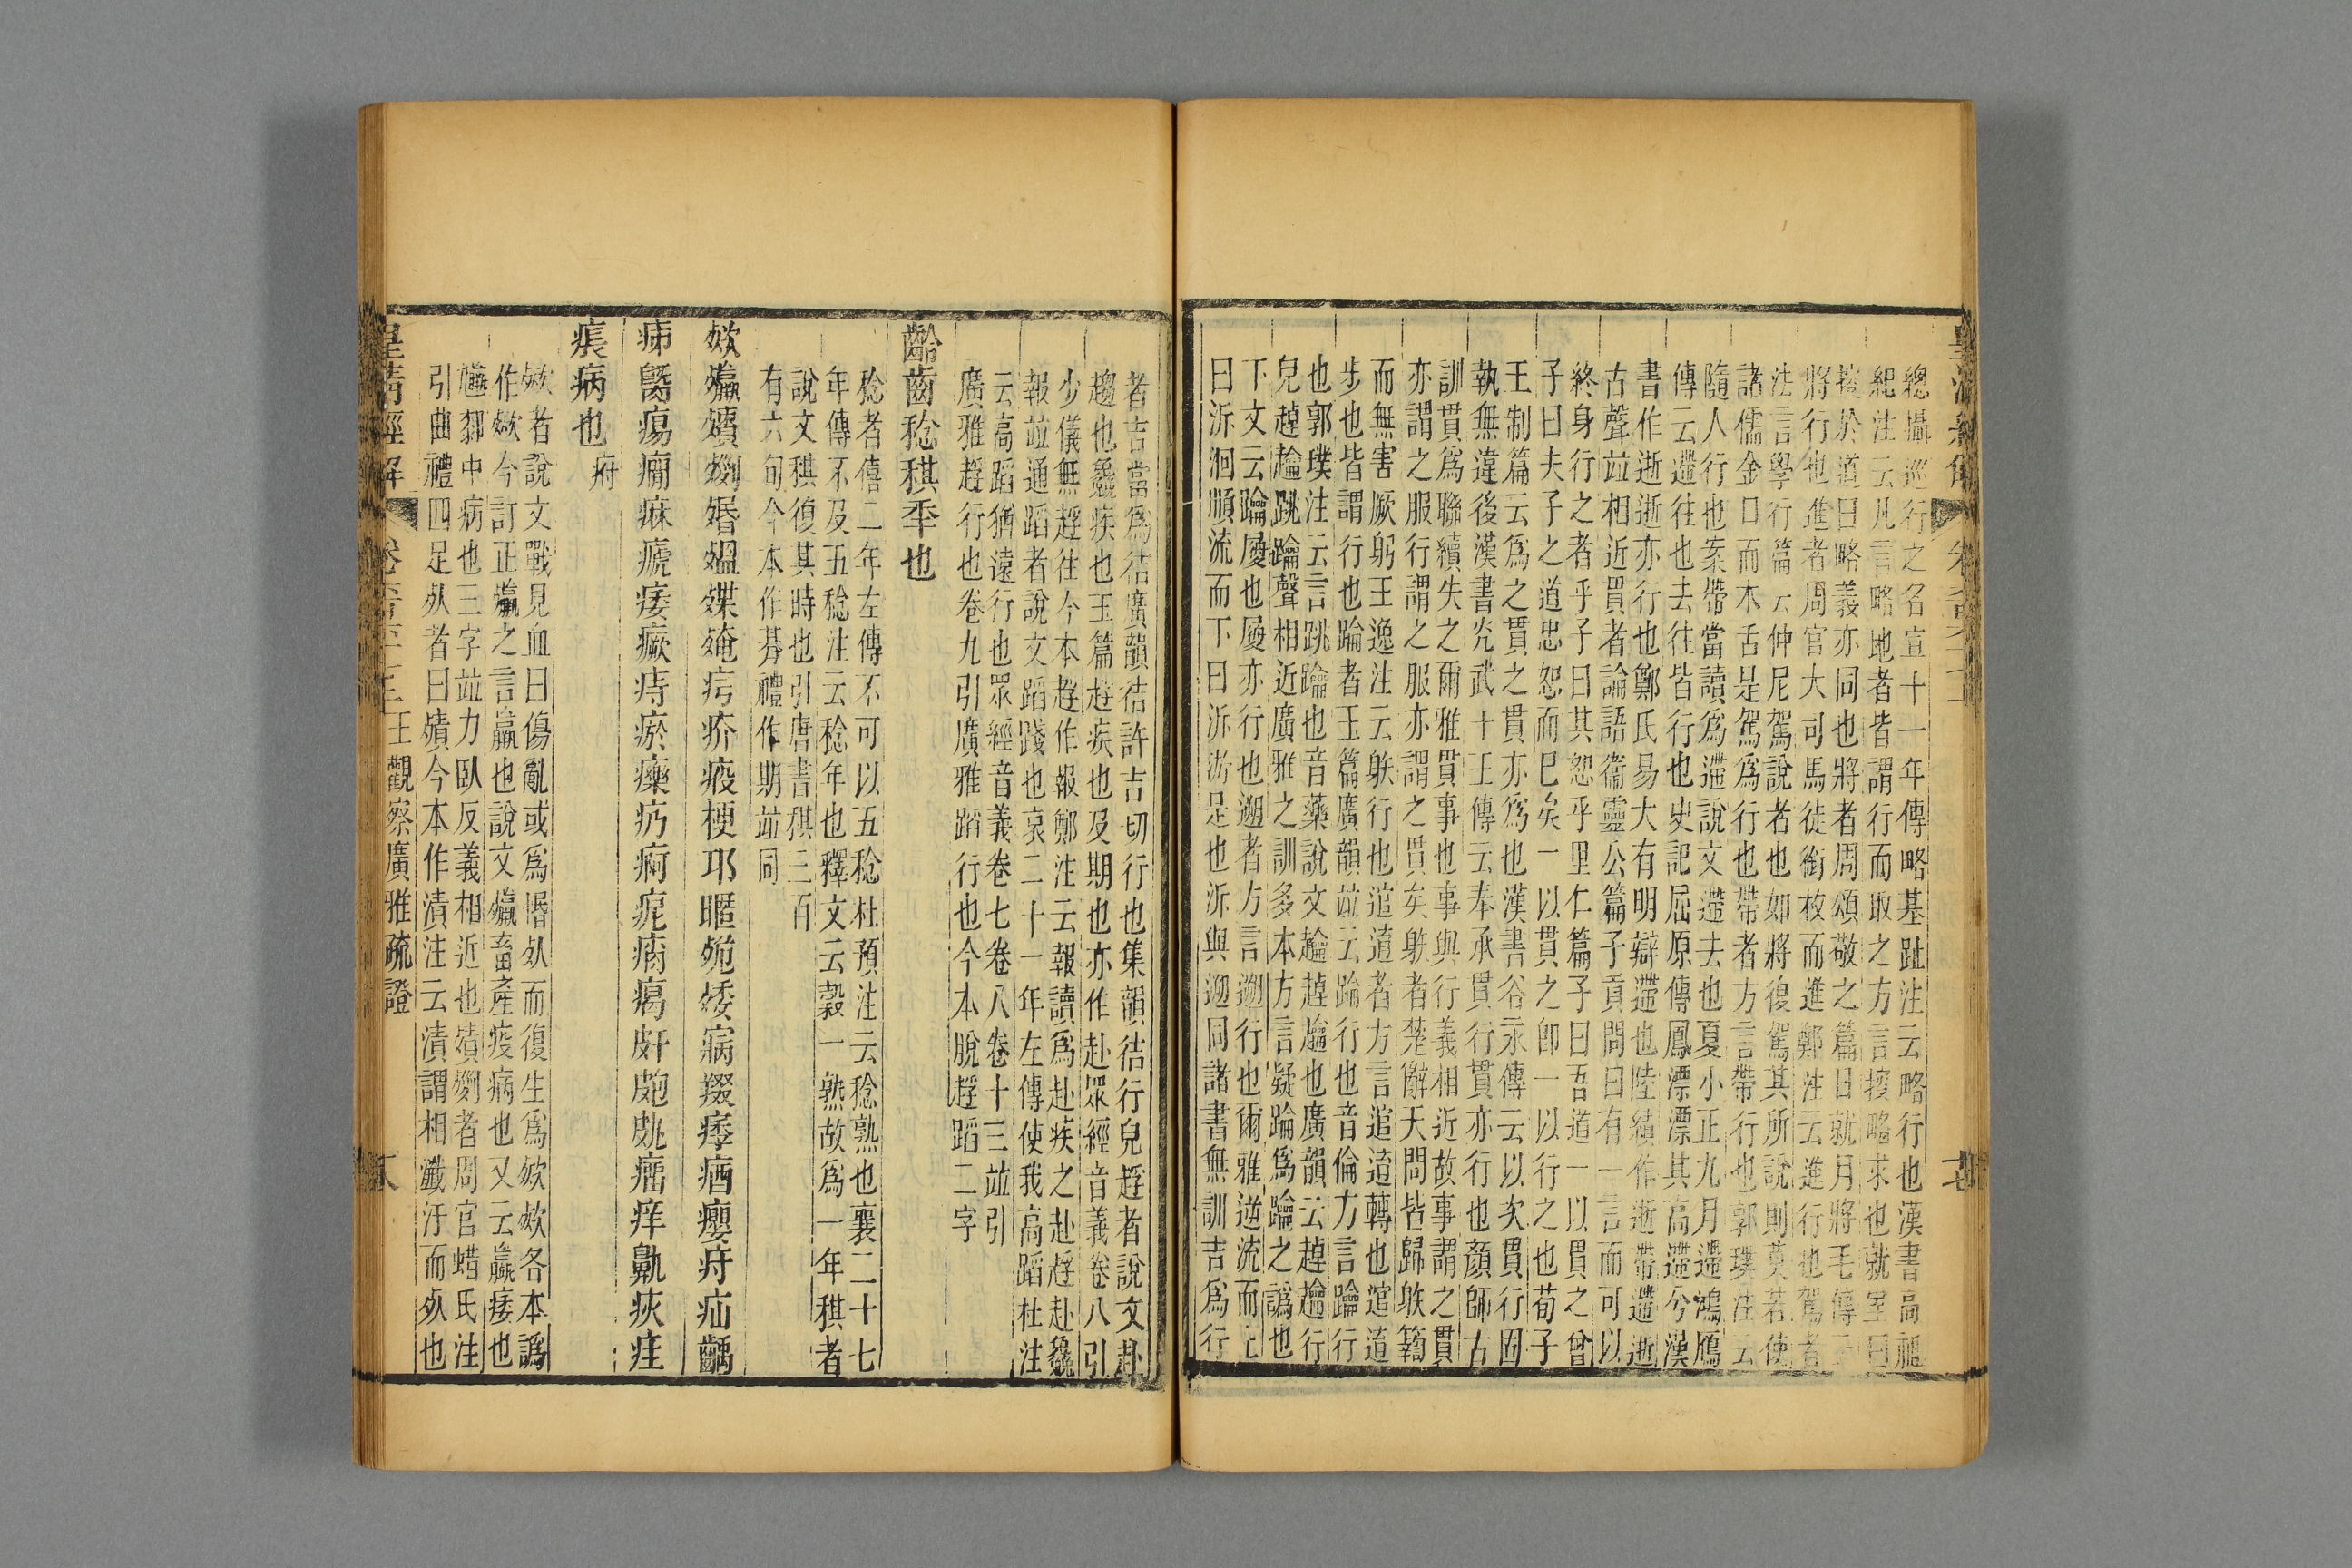 總攝巡行之名宣十一年傳略基趾注云略行也漢書高祖
紀注云凡言略地者皆謂行而取之方言搜略求也就室曰
搜於道曰略義亦同也將者周頌敬之篇日就月將毛傳云
將行也進者周官大司馬徒銜枚而進鄭注云進行也駕者
法言學行篇云仲尼駕說者也如將復駕其所說則莫若使
諸儒金口而木舌是駕爲行也帶者方言帶行也郭璞注云
隨人行也案帶當讀爲遰說文遰去也夏小正九月遰鴻鴈
傳云遰往也去往皆行也史記屈原傳鳳漂漂其高遰兮漢
書作逝逝亦行也鄭氏易大有明辯遰也陸績作逝帶遰逝
古聲竝相近貫者論語衞靈公篇子貢問曰有一言而可以
終身行之者乎子曰其恕乎里仁篇子曰吾道一以貫之曾
子曰夫子之道忠恕而已矣一以貫之卽一以行之也荀子
王制篇云爲之貫之貫亦爲也漢書谷永傳云以次貫行固
執無違後漢書光武十王傳云奉承貫行貫亦行也顏師古
訓貫爲聯續失之爾雅貫事也事與行義相近故事謂之貫
亦謂之服行謂之服亦謂之貫矣躰者楚辭天問皆歸躰籟
而無害厥躬王逸注云躰行也逭逪者方言逭逪轉也逭道
步也皆謂行也踚者玉篇廣韻竝云踚行也音倫方言踚行
也郭璞注云言跳踚也音藥說文趮趠趮也廣韻云趠趮行
皃趠趮跳踚聲相近廣雅之訓多本方言疑踚爲踚之譌也
下文云踚履也履亦行也遡者方言遡行也爾雅逆流而上
曰泝洄順流而下曰泝游是也泝與遡同諸書無訓吉爲行
者吉當爲狤廣韻狤許吉切行也集韻狤行皃趕者說文赴
趨也毚疾也玉篇趕疾也及期也亦作赴眾經音義卷八引
少儀無趕往今本趕作報鄭注云報讀爲赴疾之赴趕赴毚
報竝通蹈者說文蹈踐也哀二十一年左傳使我高蹈杜注
云高蹈猶遠行也眾經音義卷七卷八卷十三竝引
廣雅趕行也卷九引廣雅蹈行也今本脫趕蹈二字
齡齒稔稘秊也
稔者僖二年左傳不可以五稔杜預注云稔熟也襄二十七
年傳不及五稔注云稔年也釋文云穀一熟故爲一年稘者
說文稘復其時也引唐書稘三百
有六旬今本作朞禮作期竝同
欬㱻殰㱹殙殟殜殗疞疥疫梗邛䁈㱦矮㾛羸痵㾞癭㾈疝齲
疿䐯瘍癎痳瘧痿瘚痔瘀癴疓痾痆痟瘑皯皰㿡㾡痒鼽疢疰
痮病也
欬者說文戰見血曰傷亂或爲惽死而復生爲欬欬各本譌
作欬今訂正㱻之言羸也說文㱻畜產疫病也又云羸痿也
殗郪中病也三字竝力臥反義相近也殰㱹者周官蜡氏注
引曲禮四足死者曰殰今本作漬注云漬謂相瀸汙而死也
皇淸經解 王觀察廣雅疏證